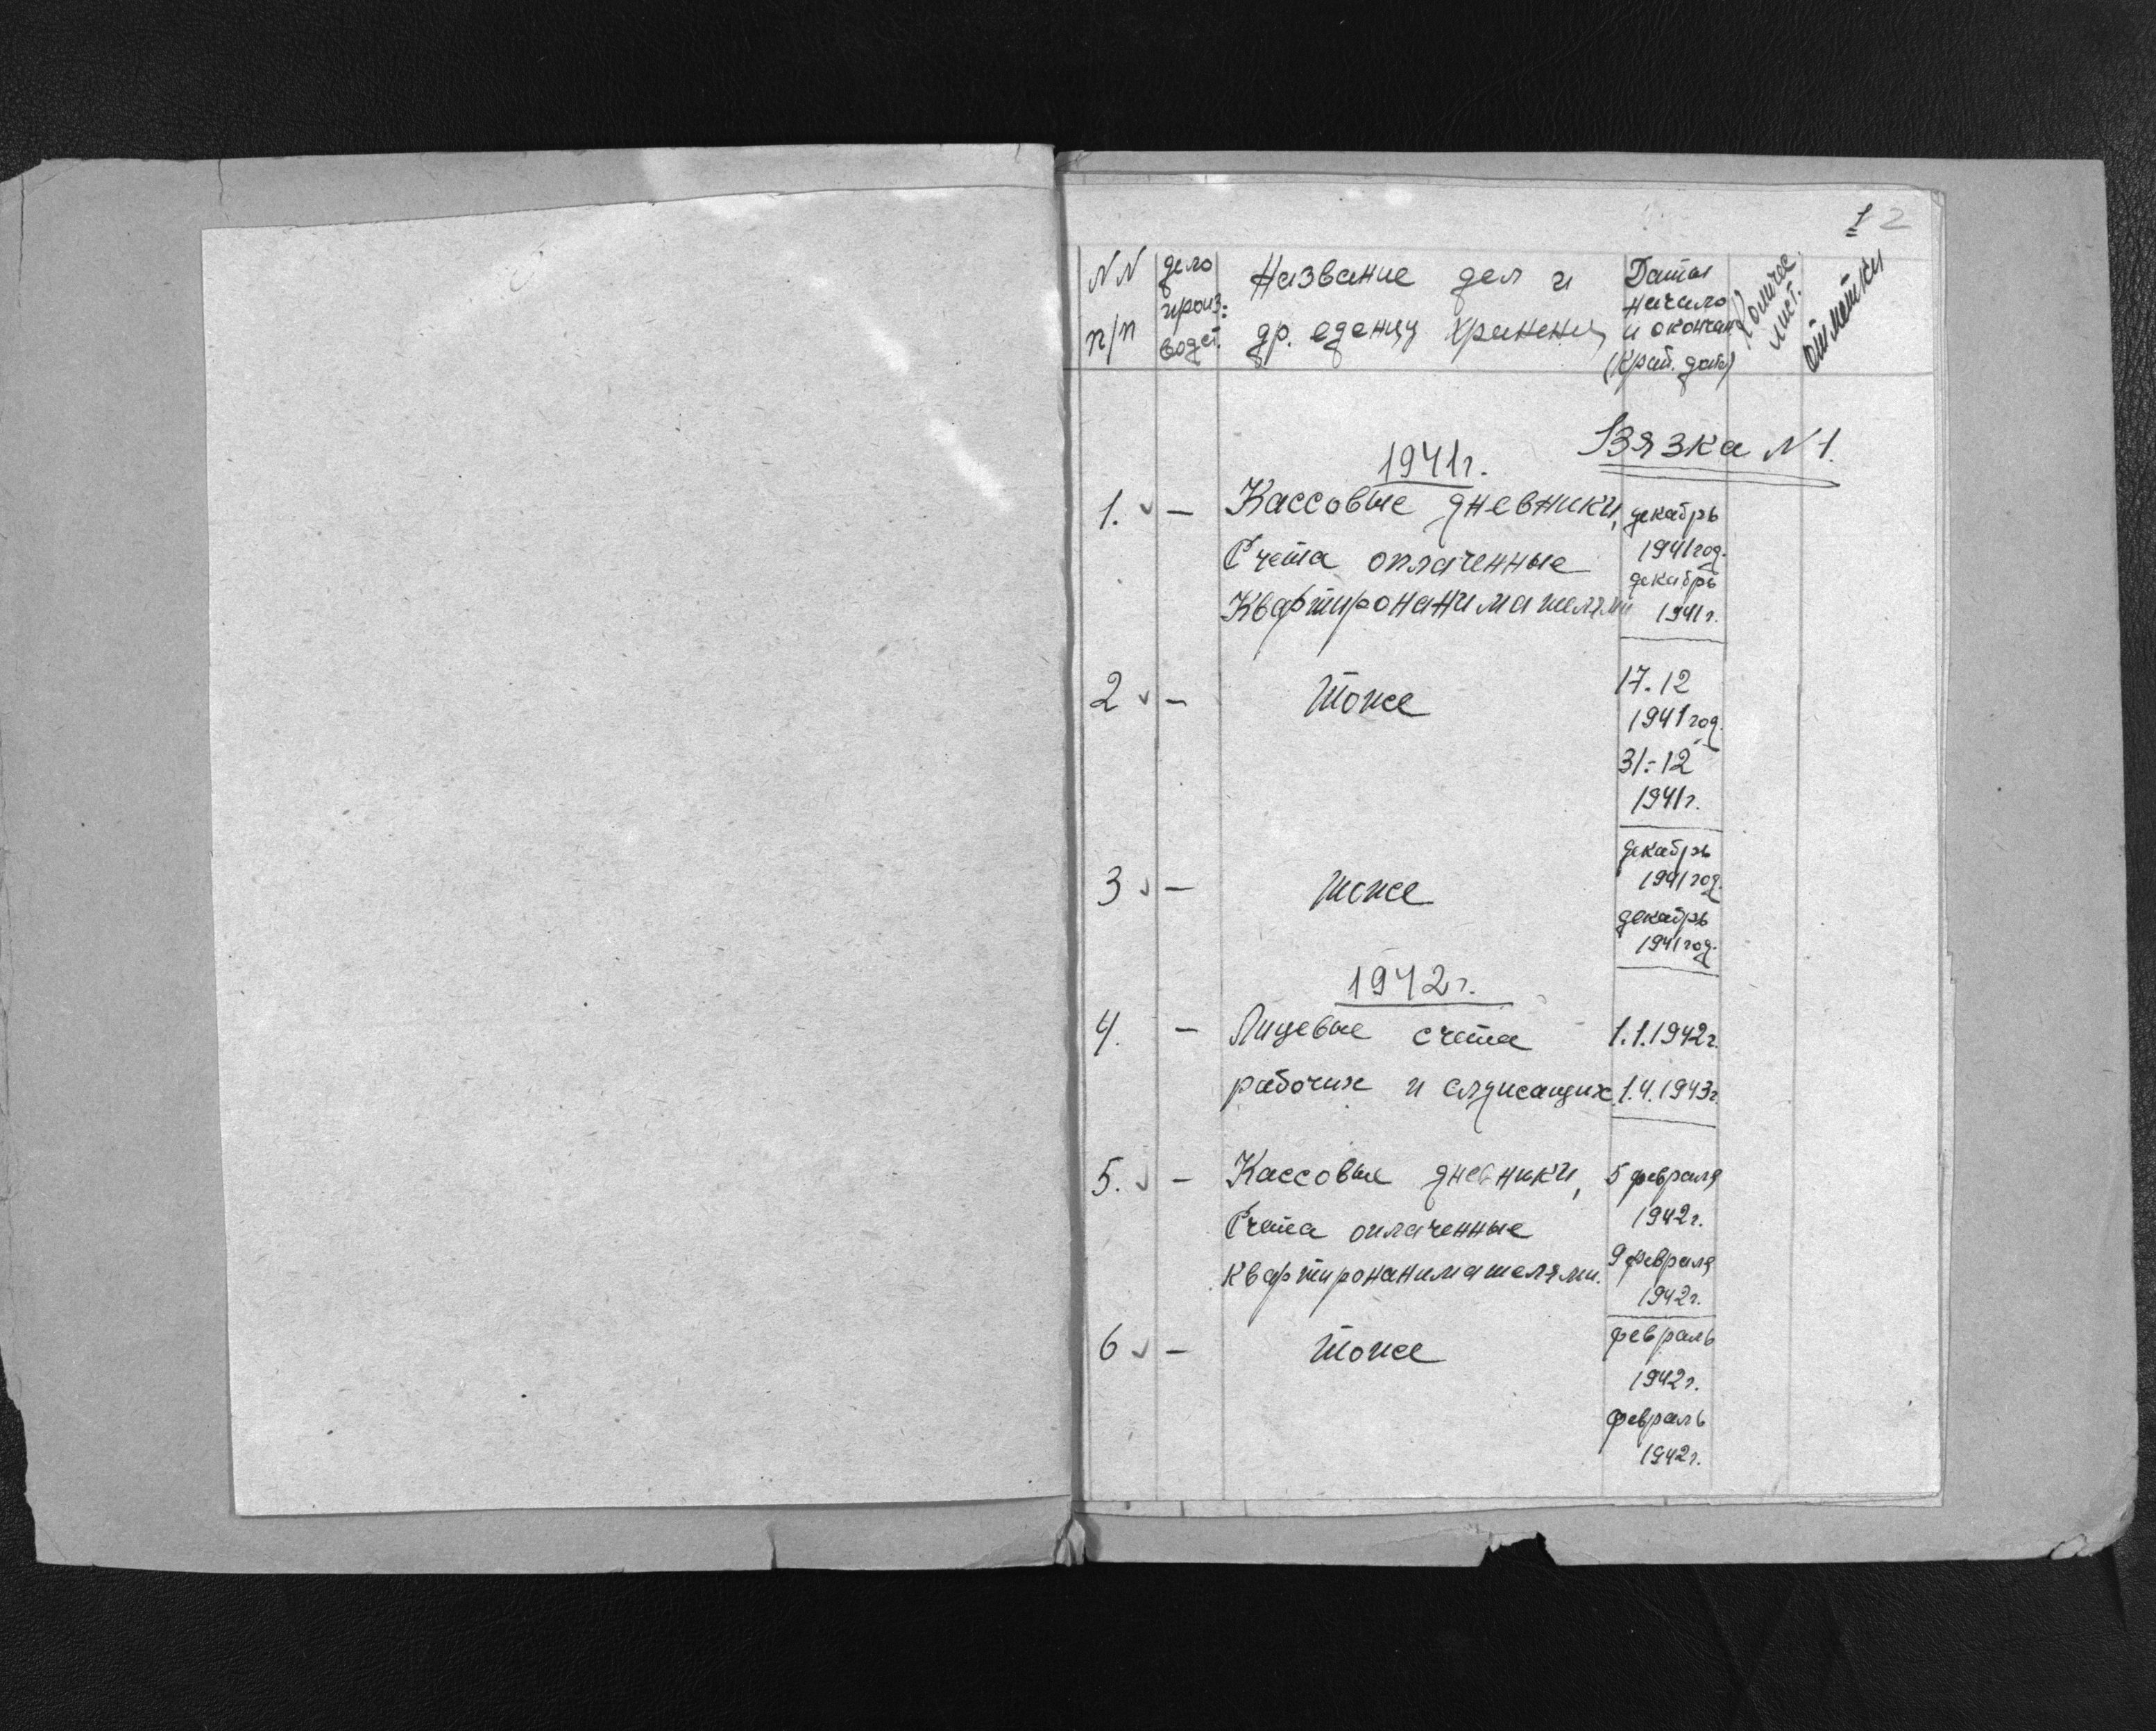 1 2
NN п/п
дело произ: водст.
Название дел и
др. едениц хранени
Даты начало и окончан (край. даты)
Количес. лист.
отметки
Вязка N 1.
1941г.
1. – Кассовые дневники, декабрь
Счета оплаченные 1941 год.
Квартиронанимателями декабрь 1941г.
2 – тоже 17.12
1941 год.
31.-12
1941г.
3 – тоже декабрь
1941 год.
декабрь
1941 год.
1942г.
4. – Лицевые счета 1.1.1942г.
рабочих и служащих. 1.4.1943г.
5. – Кассовые дневники, 5 февраля
Счета оплаченные 1942г.
квартиронанимателями. 9 февраля
1942г.
6 – тоже февраль
1942г.
февраль
1942г.